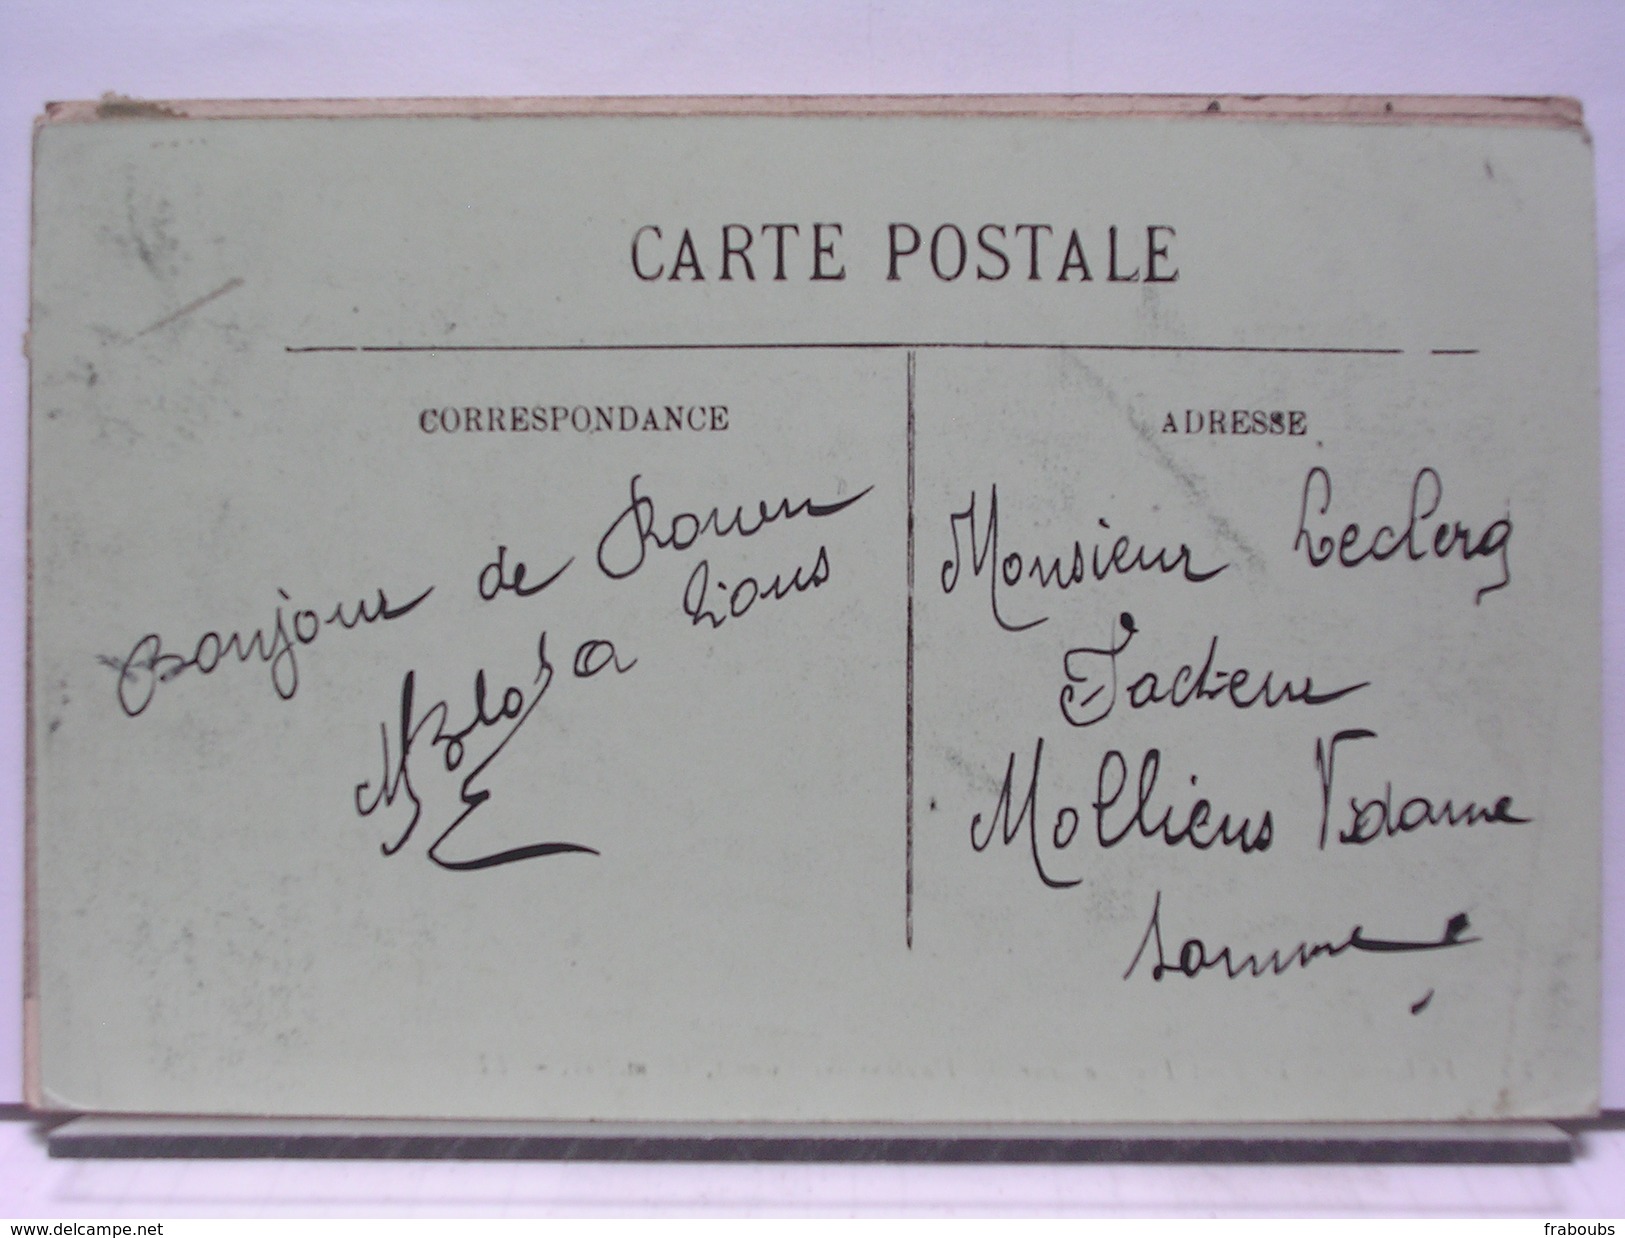 CARTE POSTALE
CORRESPONDANCE
Bonjour de Rouen
à tous
ADRESSE
Monsieur Leclerq
Facteur
Molliens Vidame
Somme
www.delcampe.net
fraboubs